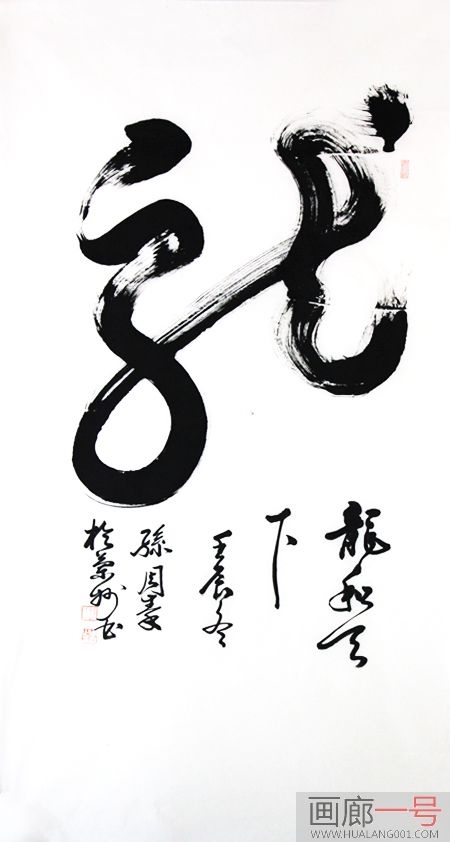 龍
龍和天
下
壬辰冬
孫周
於蘭州書
画廊一号
WWW.HUALANG001.COM